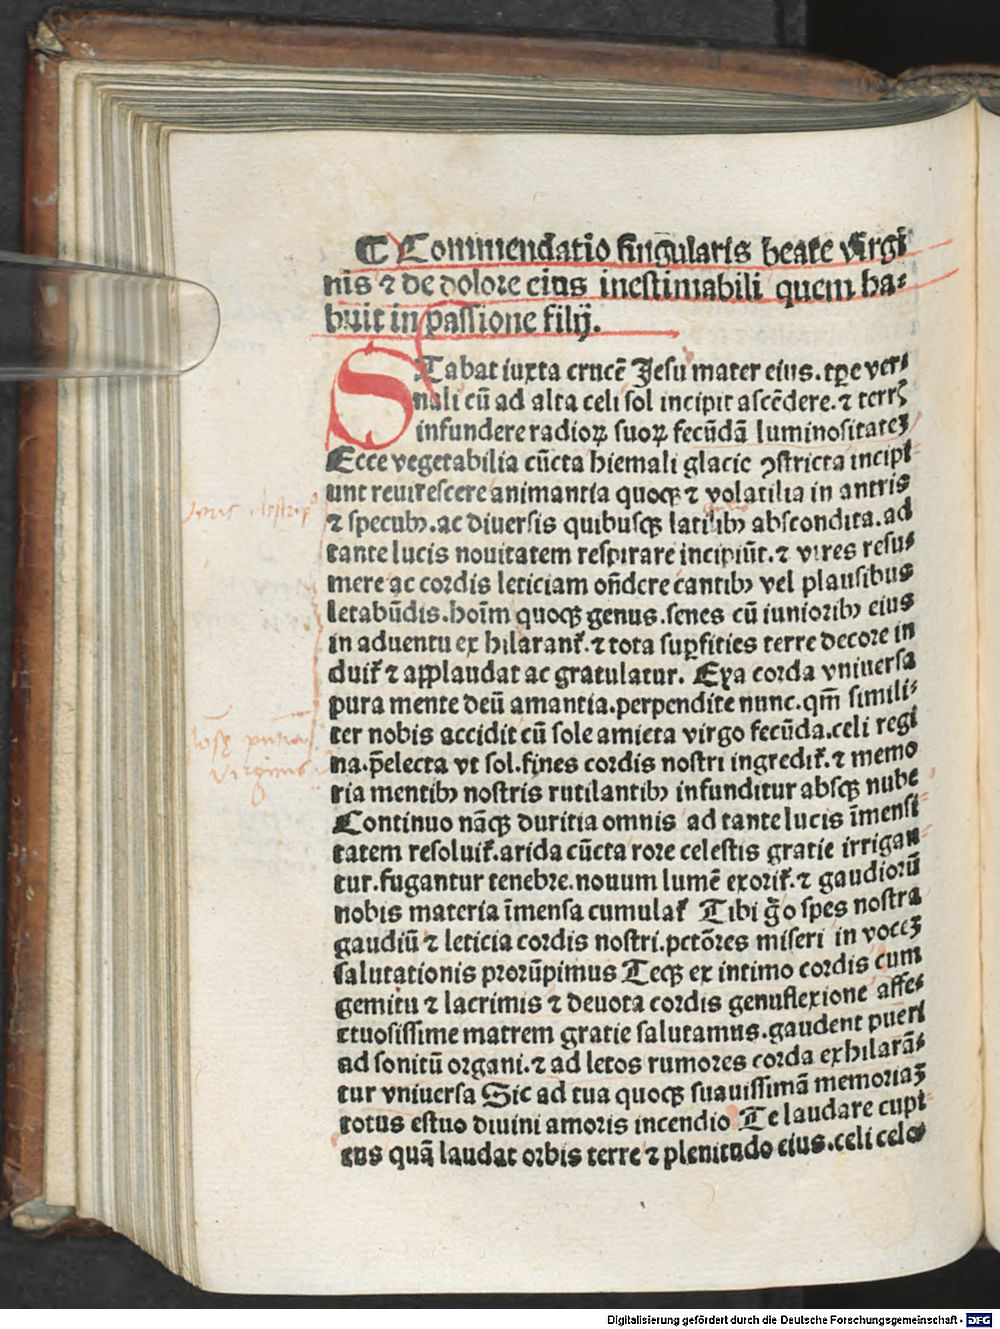 ¶ Commendatio singularis beate virgi
nis ⁊ de dolore eius inestimabili quem ha⸗
buit in passione filij.
STabat iuxta crucē Jesu mater eius. tꝑe ver⸗
nali cū ad alta celi sol incipit ascēdere. ⁊ terrꝭ
infundere radioꝝ suoꝝ fecūdā luminositateꝫ
Ecce vegetabilia cūcta hiemali glacie ꝯstricta incipi
unt reuirescere animantia quoqꝫ ⁊ volatilia in antris
⁊ specubꝫ. ac diuersis quibusqꝫ latibꝫ abscondita. ad
tante lucis nouitatem respirare incipiūt. ⁊ vires resu⸗
mere ac cordis leticiam on̄dere cantibꝫ vel plausibus
letabūdis. hoīm quoqꝫ genus. senes cū iunioribꝫ eius
in aduentu ex hilarant᷑. ⁊ tota suꝑfities terre decore in
duit᷑ ⁊ applaudat ac gratulatur. Eya corda vniuersa
pura mente deū amantia. perpendite nunc. qm̄ simili⸗
ter nobis accidit cū sole amicta virgo fecūda. celi regi
na. p̄electa vt sol. fines cordis nostri ingredit᷑. ⁊ memo
ria mentibꝫ nostris rutilantibꝫ infunditur absqꝫ nube
Continuo nāqꝫ duritia omnis ad tante lucis īmensi
tatem resoluit᷑. arida cūcta rore celestis gratie irrigan
tur. fugantur tenebre. nouum lumē exorit᷑. ⁊ gaudiorū
nobis materia īmensa cumulat᷑ Tibi g̊o spes nostra
gaudiū ⁊ leticia cordis nostri. pctōres miseri in voceꝫ
salutationis prorūpimus Teqꝫ ex intimo cordis cum
gemitu ⁊ lacrimis ⁊ deuota cordis genuflexione affe⸗
ctuosissime matrem gratie salutamus. gaudent pueri
ad sonitū organi. ⁊ ad letos rumores corda exhilarā⸗
tur vniuersa Sic ad tua quoqꝫ suauissimā memoriaꝫ
totus estuo diuini amoris incendio Te laudare cupi
ens quā laudat orbis terre ⁊ plenitudo eius. celi celo⸗
virginis
Digitalisierung gefördert durch die Deutsche Forschungsgemeinschaft - DFG